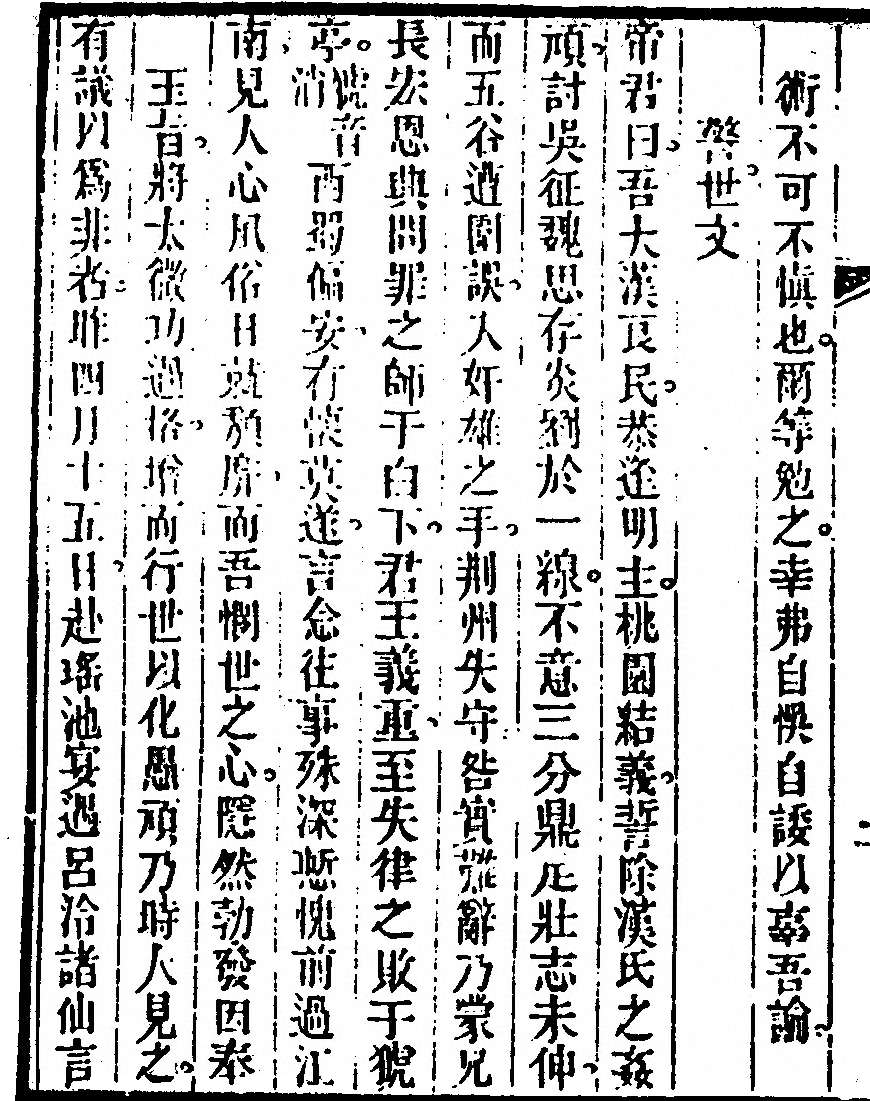 術不可不愼也爾等勉之幸弗自悞自諉以辜吾諭
警世文
帝君曰吾大漢良民恭逢明主桃園結義誓除漢氏之姦
頑討吳征魏思存炎劉於一線不意三分鼎足壯志未伸
而五谷遭圍誤入奸雄之手荆州失守咎實難辭乃蒙兄
長宏恩典問罪之師于白下君王義重至失律之敗于猇
亭猇音消西蜀偏安有懷莫遂言念往事殊深慙愧前過江
南見人心風俗日就頹靡而吾憫世之心隱然勃發因奉
玉旨將太微功過格增而行世以化愚頑乃時人見之
有議以爲非者昨四月十五日赴瑤池宴遇呂冷諸仙言